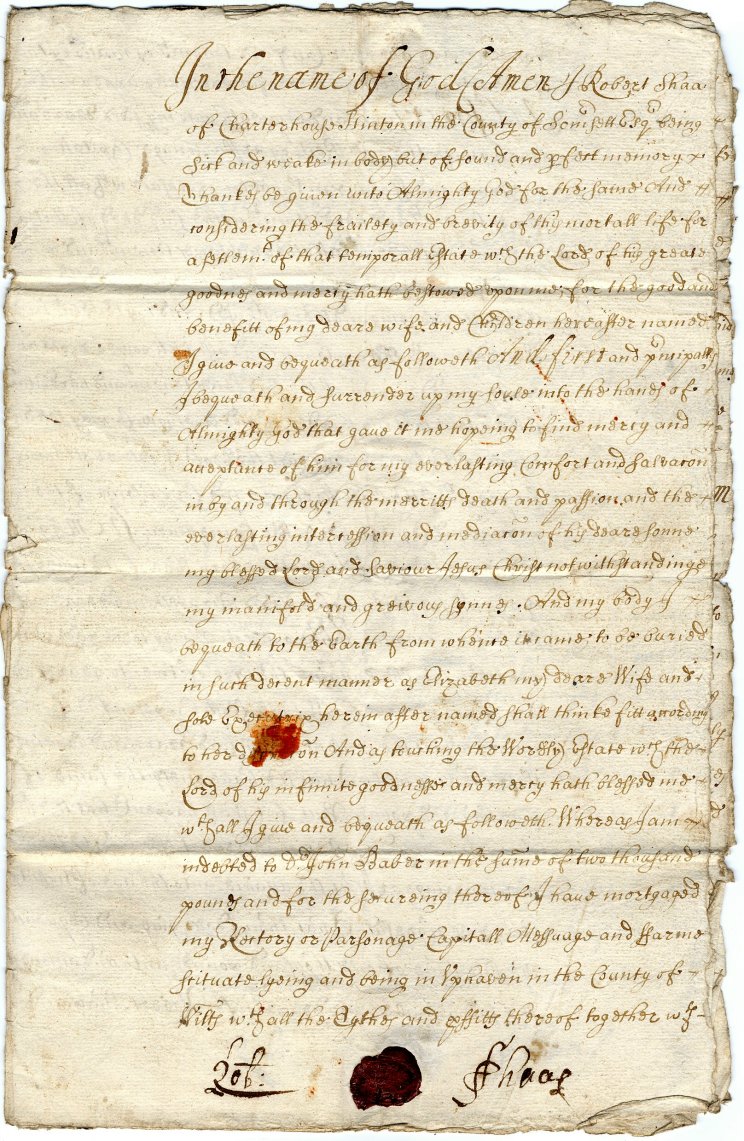 In the name of God Amen I Robert Shaa
of Charterhouse Hinton in the County of Som̃sett Esqr being
sick and weake in body but of sound and pfect memory
thankes be given unto Almighty God for the same And
considering the frailety and brevity of this mortall life for
a setlemt of that temporall estate wch the Lord of his greate
goodnes and mercy hath bestowed upon me, for the good and
benefitt of my deare wife and Children hereafter named
I give and bequeath as followeth And first and principally
I bequeath and surrender up my soule into the hands of
Almighty god that gave it me hopeing to find mercy and
acceptance of him for my everlasting Comfort and salvacõn
in by and through the merritts death and passion and the
everlasting intercession and mediacõn of his deare sonne
my blessed Lord and Saviour Jesus Christ notwithstandinge
my manifold and greivous synnes. And my body I
bequeath to the Earth from whence it came to be buried
in such decent manner as Elizabeth my deare Wife and
sole Executrix herein after named shall thinke fitt accordinge
to her And as touching the Worldly estate wch the
Lord of his infinite goodnesse and mercy hath blessed me
wthall I give and bequeath as followeth. Whereas I am
indebted to Dr John Baber in the sum̃e of two thousand
pounds and for the secureing thereof I have mortgaged
my Rectory or Parsonage Capitall Messuage and ffarme
scituate lyeing and being in Uphaven in the County of
Wilts wth all the Tythes and pffitts thereof together wth
Robt: Shaa